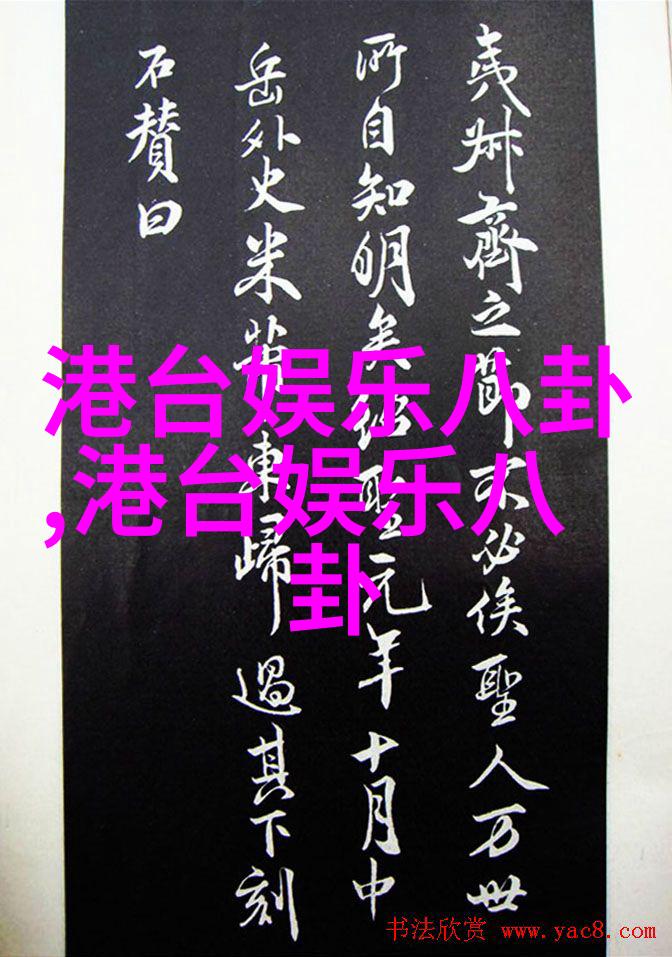 夷叔齊之節不必俟聖人万世
所自知明矣紹聖元年十月中
岳外史米黻東歸過其下刻
石賛曰
港台娱乐八卦
,港台娱乐八
卦
书法欣赏 www.yac8.com